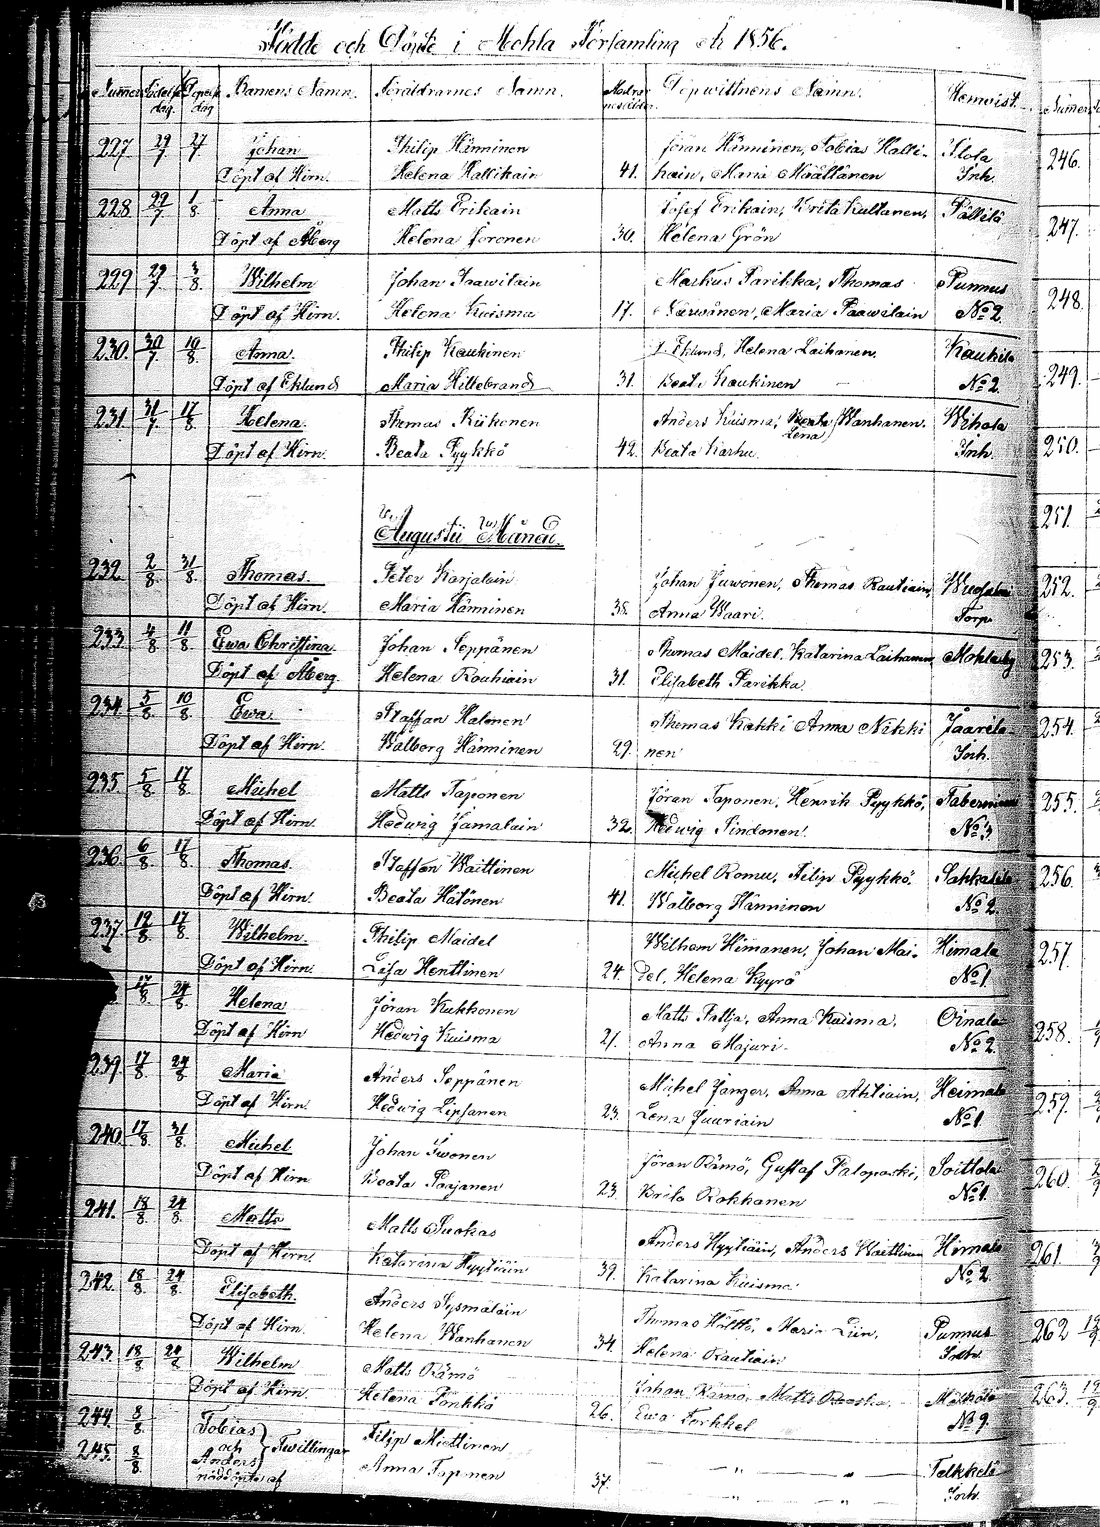 Födde och Döpte i Mohla Församling År 1856.
Numer Födelse dag Döpelse dag Barnens Namn. Föräldrarnes Namn. Modrens ålder Dopwittnens Namn. Hemvist.
227 29/7 27/7 Johan Philip Hänninen Jöran Hänninen, Tobias Halli- Ilola
Döpt af Hirn. Helena Hallikain 41. kain, Maria Määttänen Inh.
228 29/7 1/8 Anna Matts Erikain Josef Erikain, Brita Kultanen, Pällilä
Döpt af Åberg Helena Joronen 30. Helena Grön
229 29/7 3/8 Wilhelm Johan Paawilain Markus Parikka, Thomas Punnus
Döpt af Hirn. Helena Kuisma 17. Maria Paawilain No 2.
230. 30/7 10/8 Anna. Philip Kaukinen Eklund, Helena Laihanen, Kaukila
Döpt af Eklund Maria Hillebrand 31. Beata Kaukinen No 2.
231 31/7 17/8 Helena. Thomas Kiikonen Anders Kuisma, Lena Wanhanen. Wihola
Döpt af Hirn. Beata Pyykkö 42. Beata Karhu. Inh.
Augustii Månad.
232. 2/8 31/8 Thomas. Peter Karjalain Johan Juwonen, Thomas Rautiain,
Döpt af Hirn. Maria Hänninen 38. Anna Waari. Torp.
233 4/8 11/8 Ewa Christina. Johan Seppänen Thomas Maidel, Katarina Laihanen, Mohlaby
Döpt af Åberg. Helena Rouhiain 31. Elisabeth Parikka.
234 5/8 10/8 Ewa. Staffan Halonen Thomas Kekki Anna Nikki Jäärilä
Döpt af Hirn. Walborg Hänninen 29. nen Inh.
235. 5/8 17/8 Michel Matts Taponen Jöran Taponen, Henrik Pyykkö,
Döpt af Hirn. Hedwig Jamalain 32. Hedwig Pindonen. No 3.
236. 6/8 17/8 Thomas. Staffan Waittinen Michel Romu, Filip Pyykkö. Sakkala
Döpt af Hirn. Beata Hätönen 41. Walborg Hänninen No 2.
237. 12/8 17/8 Wilhelm. Philip Maidel Wilhem Himanen, Johan Mai- Himala
Döpt af Hirn. Lisa Henttinen 24. del, Helena Kyyrö No 1.
17/8 24/8 Helena Jöran Kukkonen Matts Pattja, Anna Kuisma, Oinala
Döpt af Hirn Hedwig Kuisma 21. Anna Majuri. No 2.
239. 17/8 24/8 Maria Anders Seppänen Michel Janger, Anna Ahtiain, Heimala
Döpt af Hirn. Hedwig Lipsanen 23. Lena Juuriain No 1.
240. 17/8 31/8 Michel Johan Iwonen Jöran Rämö, Gustaf Palopaski, Soittola
Döpt af Hirn Beata Paajanen 23. Brita Rokkanen No 1.
241. 18/8 24/8 Matts Matts Suokas Anders Hyytiäin, Anders Waittinen Himala
Döpt af Hirn. Katarina Hyytiäin 39. Katarina Kuisma No 2.
242. 18/8 24/8 Elisabeth. Anders Sysmäläin Thomas Hölttö, Maria Liin, Punnus
Döpt af Hirn. Helena Wanhanen 34. Helena Rautiain Inh.
243. 18/8 24/8 Wilhelm Matts Rämö Johan Rämö, Matts
Döpt af Hirn. Helena Pönkkä 26. Ewa Torkkel No 9.
244. 8/8 Tobias Filip Miettinen
och Twillingar
245. 8/8 Anders Anna 37. Telkkälä
nöddöpte af Inh.
246.
247.
248.
249.
250.
251.
252.
253.
254.
255.
256.
257.
258.
259.
260.
261.
262
263.